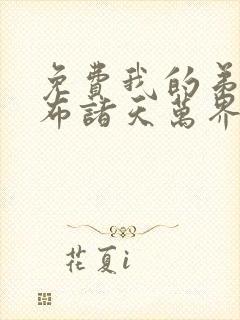 免費我的弟
布諸天萬界
花夏i